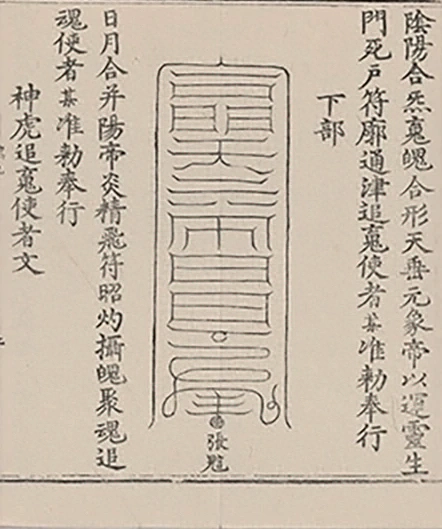 陰陽合炁䰟魄合形天垂元象帝以運靈生
門死戶符廓通津追䰟使者某准勅奉行
下部
張䰢
日月合并陽帝炎精飛符昭灼攝魄聚魂追
魂使者某准勅奉行
神虎追䰟使者文